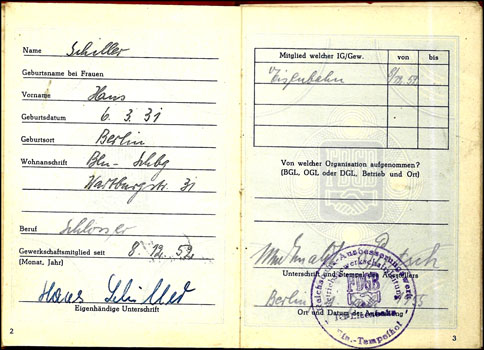 Name Schiller
Geburtsname bei Frauen
Vorname Hans
Geburtsdatum 6. 3. 31
Geburtsort Berlin
Wohnanschrift Bln- Schbg
Wartburgstr. 31
Beruf Schlosser
Gewerkschaftsmitglied seit 8. 12. 52
(Monat, Jahr)
Hans Schiller
Eigenhändige Unterschrift
2
Mitglied welcher IG/Gew. von bis
Eisenbahn
Von welcher Organisation aufgenommen?
(BGL, OGL oder DGL, Betrieb und Ort)
FDGB
Unterschrift und Stempel des Ausstellers
Berlin
Ort und Datum der Ausstellung
FDGB
Bln.-Tempelhof
3